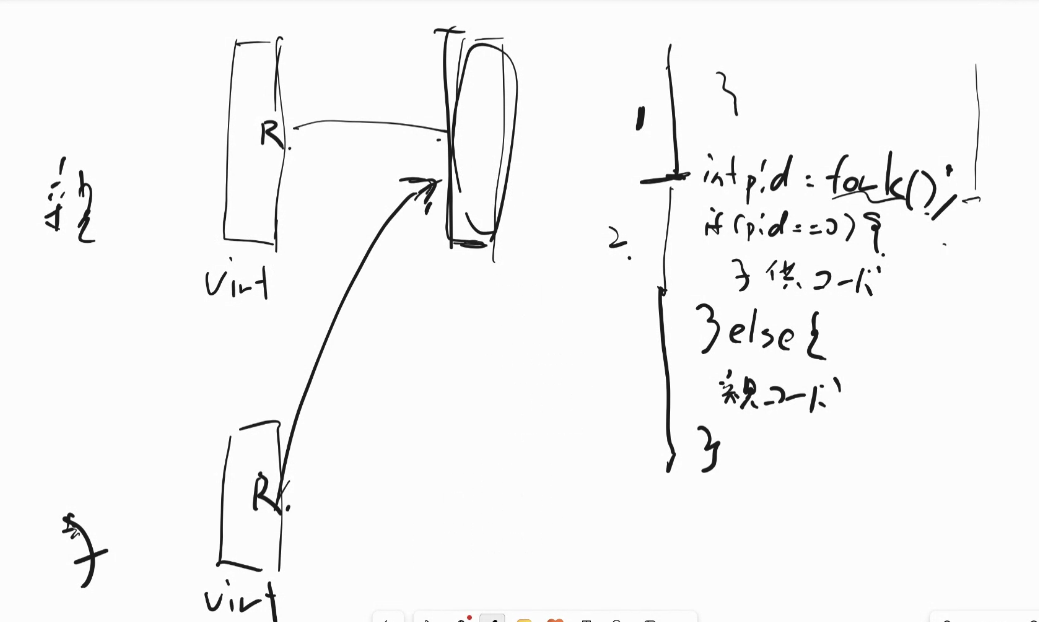 親
R.
virt
子
R.
virt
1
}
int pid = fork();
2.
if (pid==0) {
子供コード
} else {
親コード
}